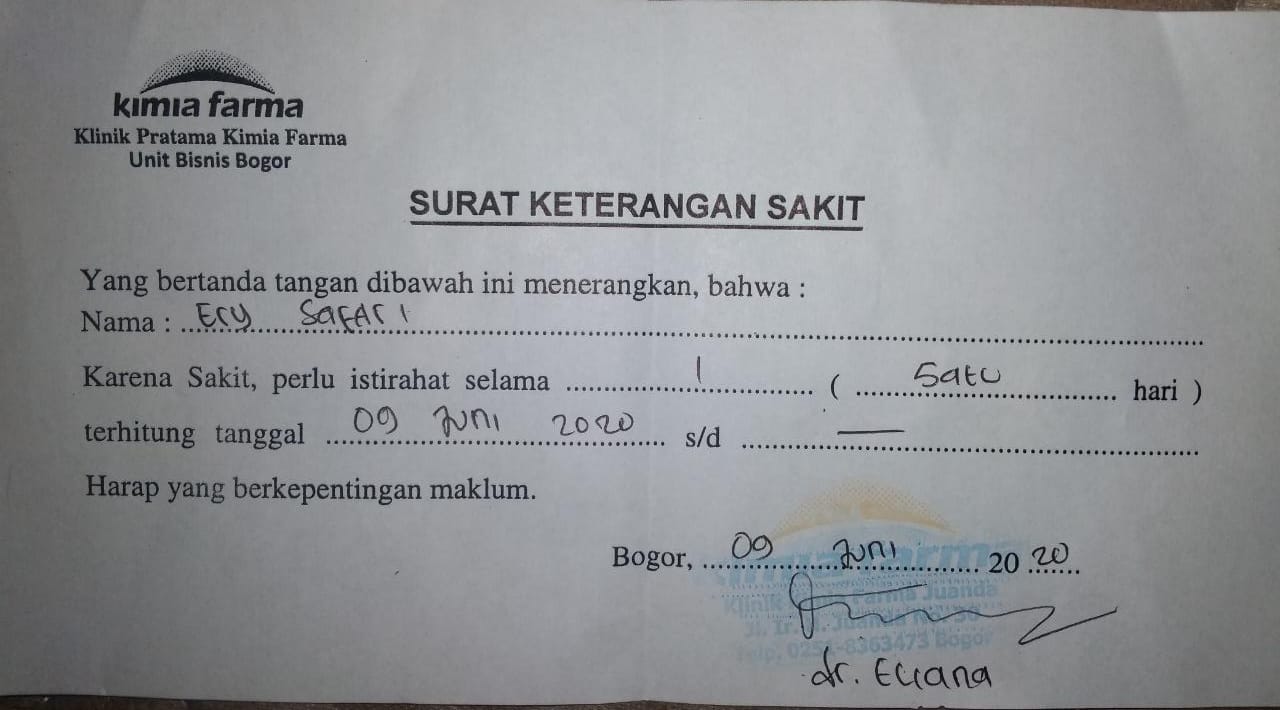 kimia farma
Klinik Pratama Kimia Farma
Unit Bisnis Bogor
SURAT KETERANGAN SAKIT
Yang bertanda tangan dibawah ini menerangkan, bahwa :
Nama : Ery Safari
Karena Sakit, perlu istirahat selama 1 ( Satu hari )
terhitung tanggal 09 Juni 2020 s/d —
Harap yang berkepentingan maklum.
Bogor, 09 Juni 2020
kimia farma
Klinik Kimia Farma Juanda
Jl. Ir. H. Juanda No.
Telp. 0251-8363473 Bogor
dr. Eriana